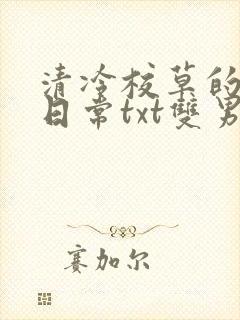 清冷校草的
日常txt雙男
赛加尔